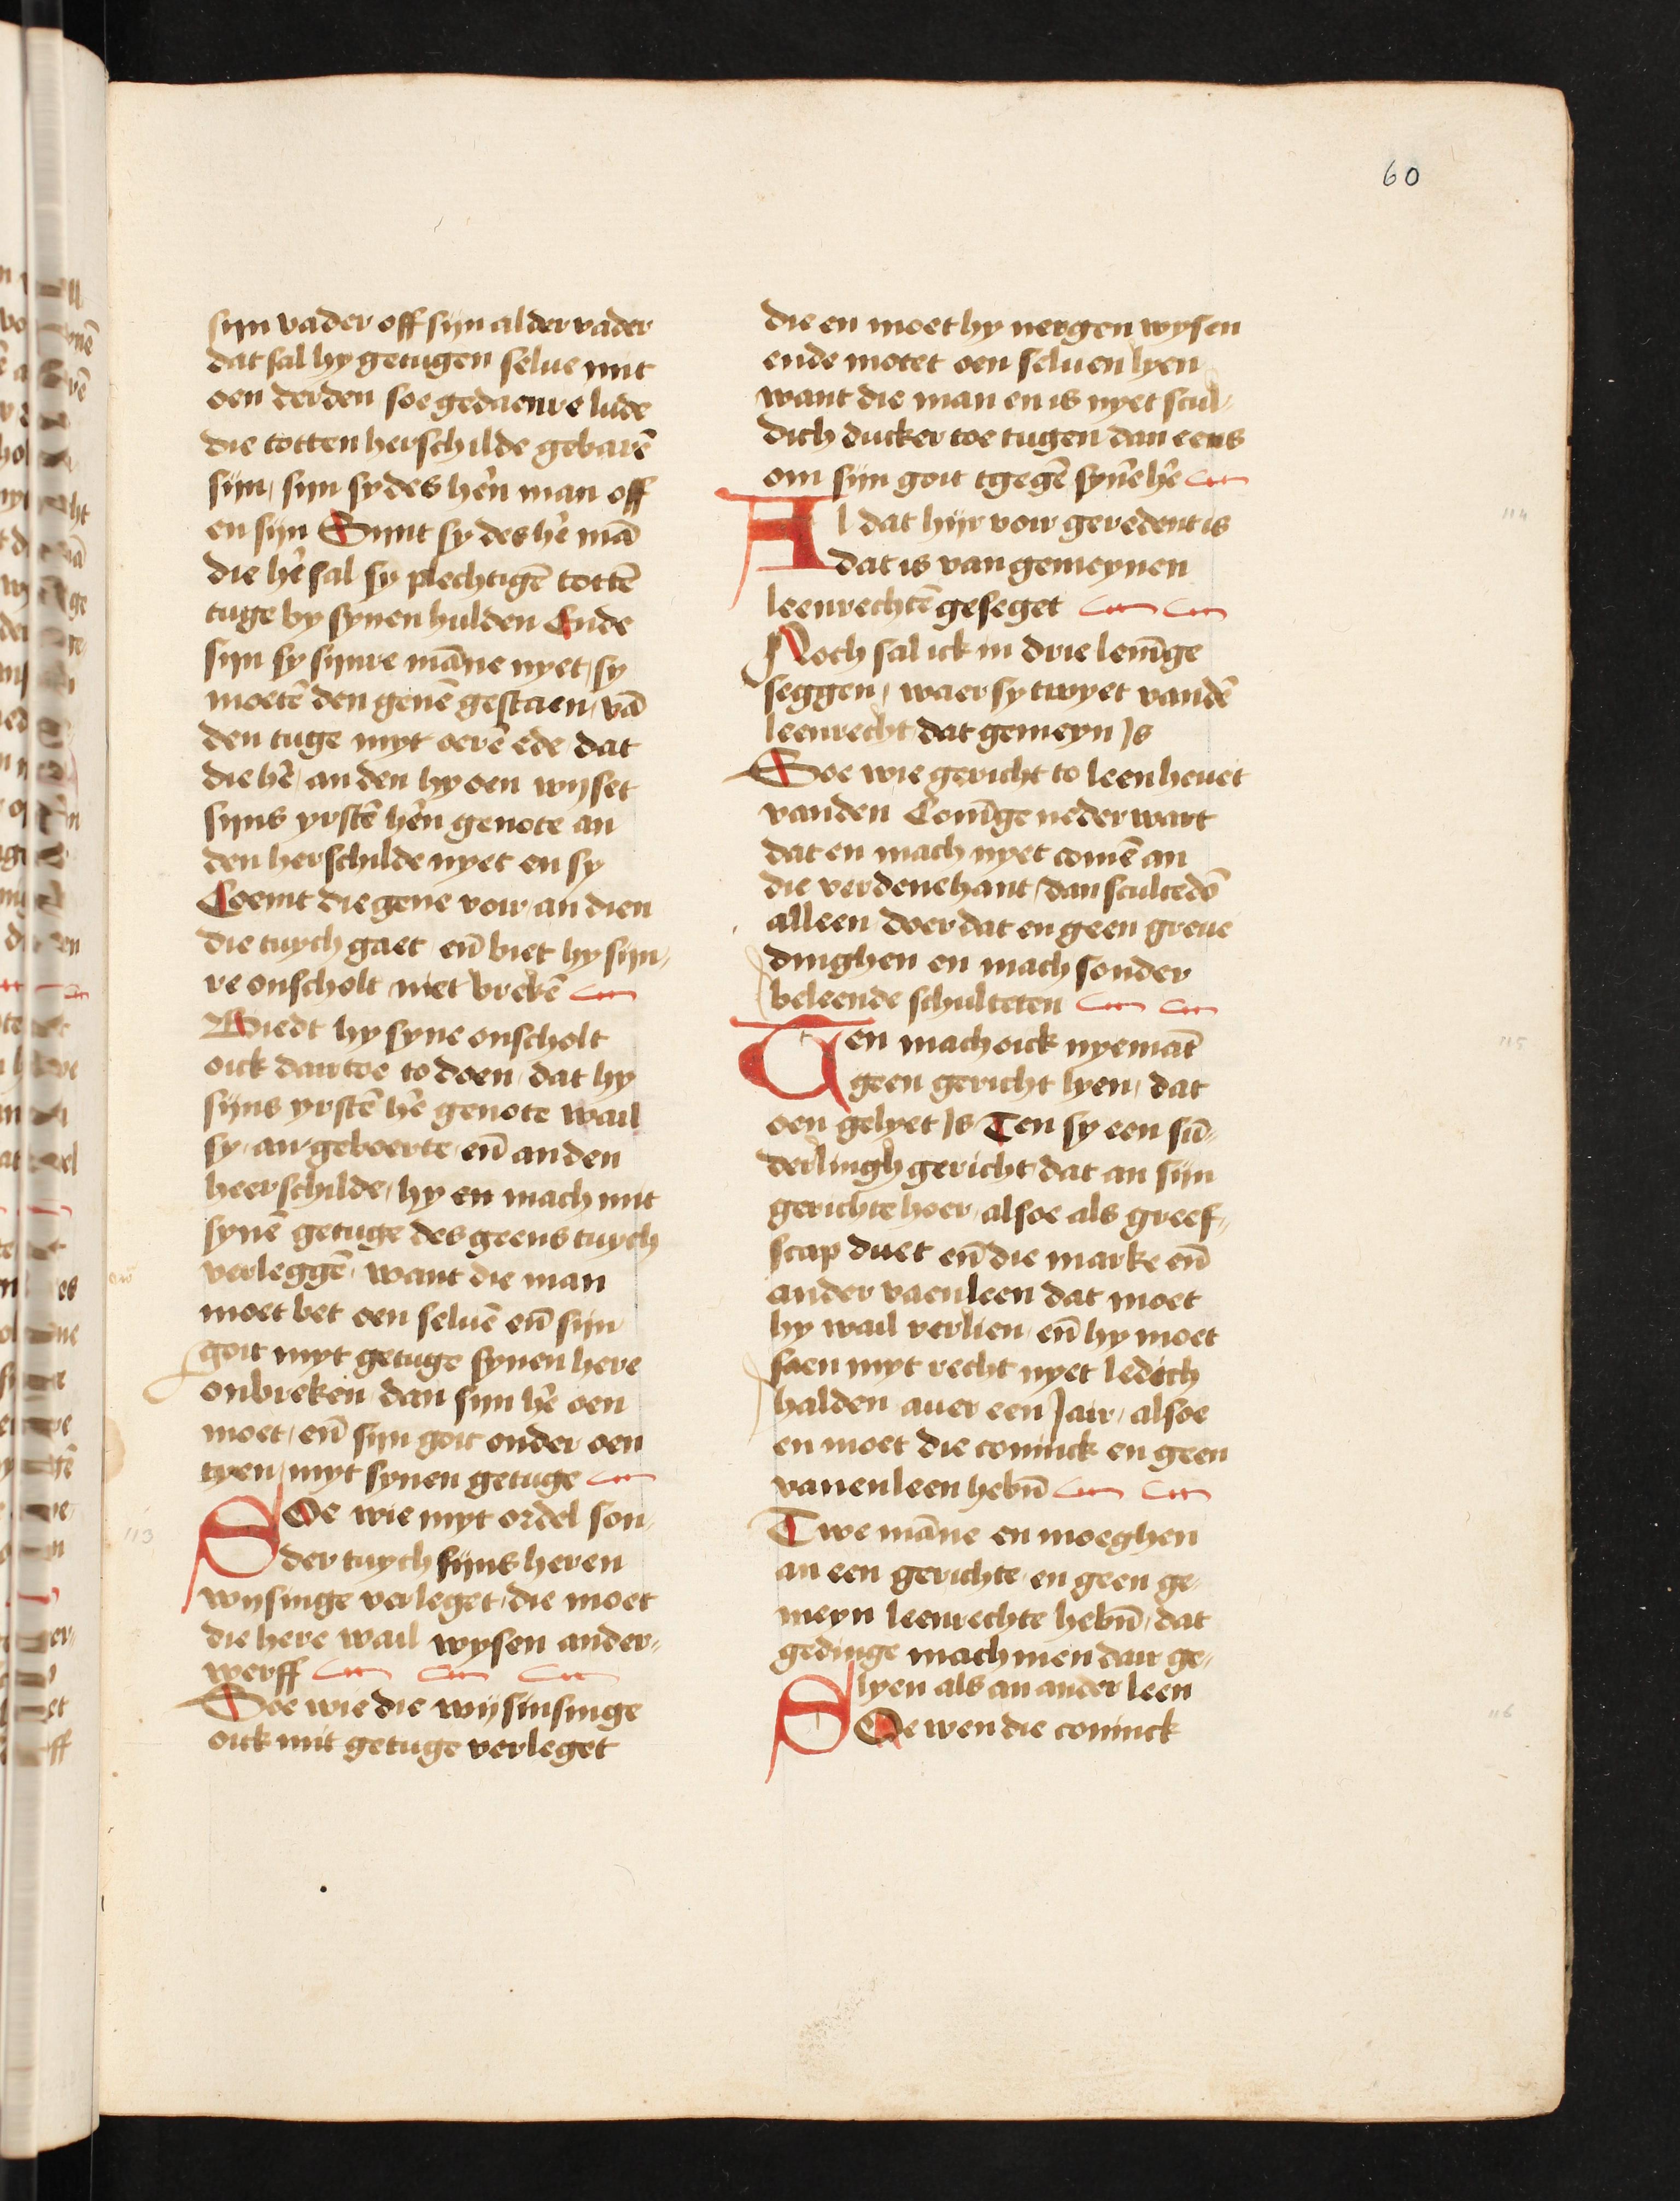 60
sijn vader off sijn alder vader
dat sal hy getugen selue mit
oen derden soe gedaenre lude
die totten herschilde gebarē
sijn, sijn sy des hēn man off
en sijn Sunt sy des hē mā
die hē sal sy plechtigē tottē
tuge by synen hulden Ende
sijn sy sijnre māne nyet, sy
moetē den genē gestaen, vā
den tuge myt oerē ede dat
die hē, an den hy oen wijset
sijns yrstē hēn genote an
den herschilde nyet en sy
Coemt die gene voir an dien
die tuych gaet eñ biet hy sijn,
re onscholt niet brekē
Biedt hy syne onscholt
oick dair toe to doen, dat hy
sijns yrstē hē genote wail
sy, an geboerte, eñ an den
heerschilde, hy en mach mit
synē getuge des geens tuych
verleggē, want die man
moet bet oen seluē eñ sijn
goit myt getuge synen here
onbreken dan sijn hē oen
moet, eñ sijn goit onder oen
tyen, myt synen getuge
113
SOe wie myt ordel son,
der tuych sijns heren
wijsinge verleget, die moet
die here wail wysen ander,
werff
Soe wie die wijsinsinge
oick mit getuge verleget
die en moet hy nergen wysen
ende motet oen seluen lyen
want die man en is nyet scul,
dich ducker toe tugen dan eens
om sijn goit tgegē synē hē
114
Al dat hijr voir geredent is
dat is van gemeynen
leenrechtē geseget
Noch sal ick in drie lenīge
seggen, waer sy twyet vandē
leenrecht dat gemeyn Is
Soe wie gericht to leen heuet
vanden Conīge nederwart
dat en mach nyet comē an
die verdene hant, dan scultedō
alleen doer dat en geen greue
dinghen en mach sonder
beleende schulteten
115
Ten mach oick nyemāt
geen gericht lyen, dat
oen gelyet Is Ten sy een sū,
derlingh gericht dat an sijn
gerichte hoer, alsoe als greef,
scap duet eñ die marke eñ
ander vaenleen dat moet
hy wail verlien, eñ hy moet
saen myt recht nyet ledich
halden auer een Jair, alsoe
en moet die coninck en geen
vanenleen hebn̄
Twe māne en moeghen
an een gerichte, en geen ge,
meyn leenrechte hebn̄, dat
gedinge mach men dair ge,
lyen als an ander leen
116
SOe wen die coninck